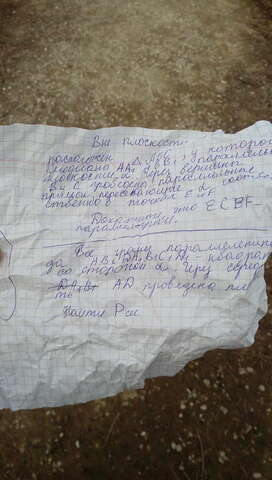 Вне плоскости
расположен Δ ABC, у которой
медианы AA₁ и BB₁ параллельны
плоскости α. Через вершины
B и C проведены параллельные
прямые, пересекающие α соотв
ственно в точках E и F.
Доказать что ECBF –
параллелограмм.
Все грани параллелепипе
да ABCDA₁B₁C₁D₁ - квадрат
со стороной a. Через серед
AD проведена пл
Найти P